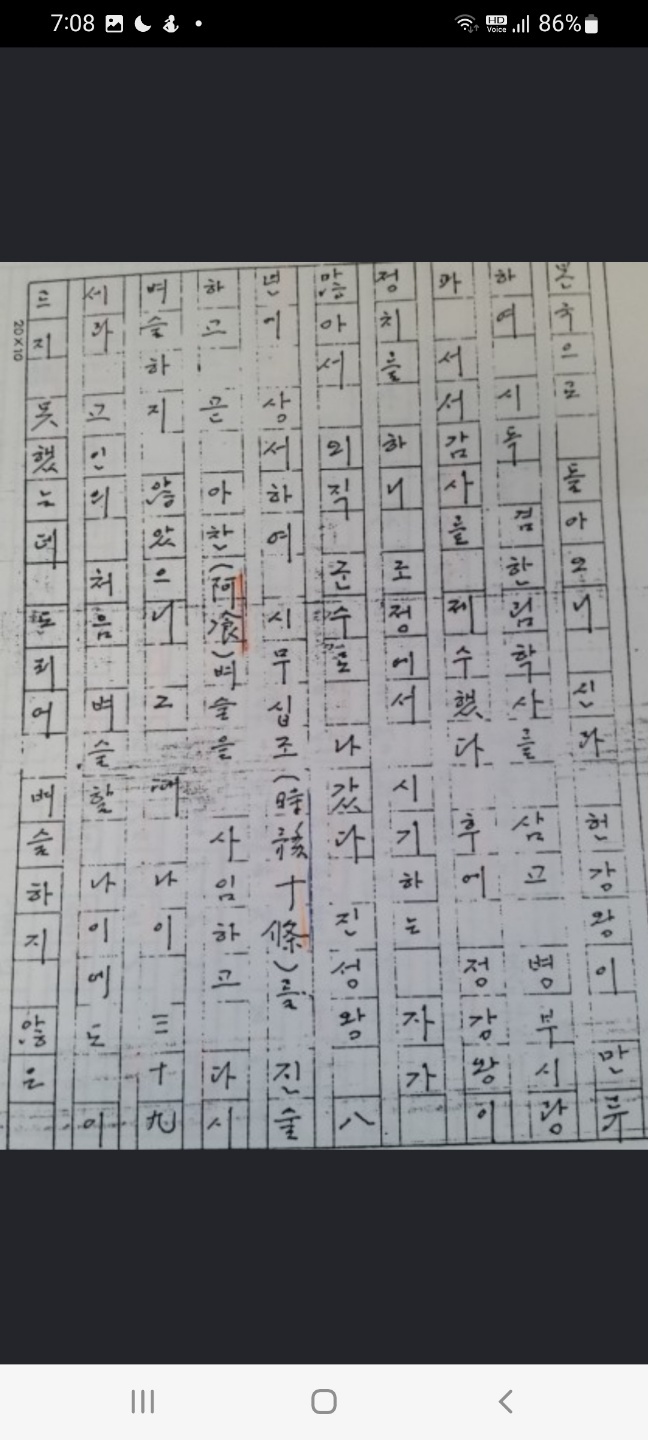 7:08
HD Voice 86%
본국으로 돌아오니 신라 헌강왕이 만류
하여 시독 겸 한림학사를 삼고 병부시랑
과 서서감사를 제수했다 후에 정강왕이
정치를 하니 로정에서 시기하는 자가
많아서 외직 군수로 나갔다 진성왕 八
년에 상서하여 시무십조(時務十條)를 진술
하고. 곧 아찬(阿飡)벼슬을 사임하고 다시
벼슬하지 않았으니 그 때 나이 三十九
세라 고인의 처음 벼슬할 나이에도 이
르지 못했는데 도리어 벼슬하지 않은
20X10